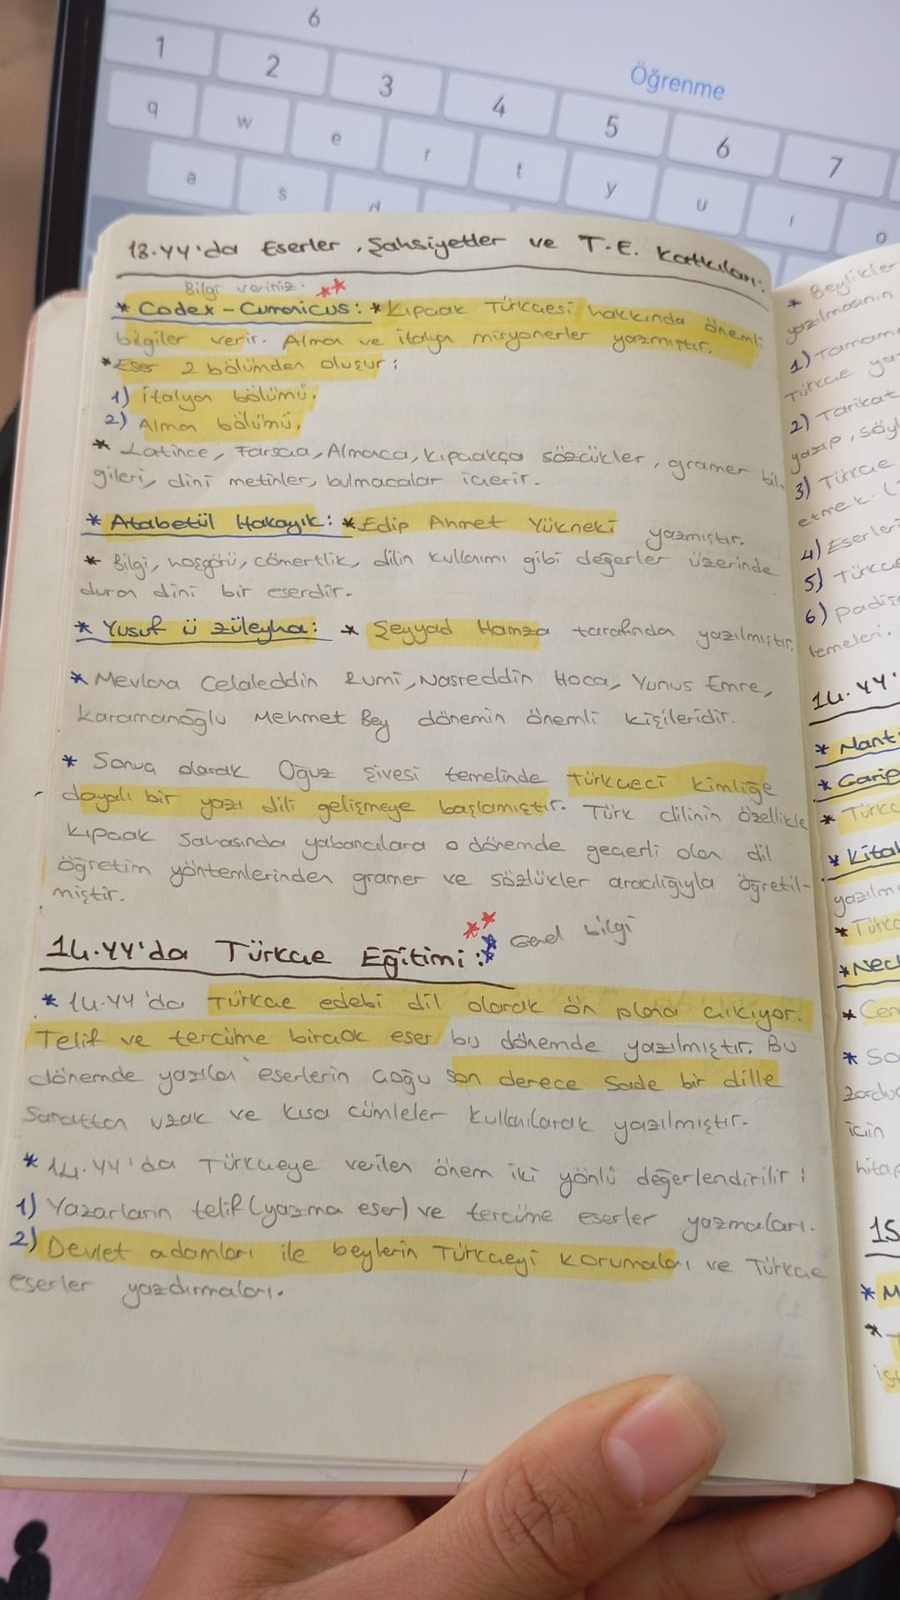 6
Öğrenme
1 2 3 4 5 6 7
q w e r t y u ı o
a s d
13.YY'da Eserler, Şahsiyetler ve T.E. Katkıları:
Bilgi veriniz. **
* Codex-Cumanicus: * Kıpçak Türkçesi hakkında önemli
bilgiler verir. Alman ve italyan misyonerler yazmıştır.
* Eser 2 bölümden oluşur:
1) italyan bölümü.
2) Alman bölümü.
* Latince, Farsça, Almanca, Kıpçakça sözcükler, gramer bil-
gileri, dini metinler, bulmacalar içerir.
* Atabetül Hakayık: * Edip Ahmet Yükneki yazmıştır.
* Bilgi, hoşgörü, cömertlik, dilin kullanımı gibi değerler üzerinde
duran dini bir eserdir.
* Yusuf ü Züleyha: * Şeyyad Hamza tarafından yazılmıştır.
* Mevlana Celaleddin Rumi, Nasreddin Hoca, Yunus Emre,
Karamanoğlu Mehmet Bey dönemin önemli kişileridir.
* Sonuç olarak Oğuz şivesi temelinde türkçeci kimliğe
dayalı bir yazı dili gelişmeye başlamıştır. Türk dilinin özellikle
Kıpçak sahasında yabancılara o dönemde geçerli olan dil
öğretim yöntemlerinden gramer ve sözlükler aracılığıyla öğretil-
miştir.
14.YY'da Türkçe Eğitimi: ** Genel bilgi
* 14.YY'da Türkçe edebi dil olarak ön plana çıkıyor.
Telif ve tercüme birçok eser bu dönemde yazılmıştır. Bu
dönemde yazılan eserlerin çoğu son derece sade bir dille
Sanattan uzak ve kısa cümleler kullanılarak yazılmıştır.
* 14.YY'da Türkçeye verilen önem iki yönlü değerlendirilir:
1) Yazarların telif (yazma eser) ve tercüme eserler yazmaları.
2) Devlet adamları ile beylerin Türkçeyi korumaları ve Türkçe
eserler yazdırmaları.
* Beylikler
yazılmasının
1) Tamam
Türkçe
2) Tarikat
yazıp, söyl
3) Türkçe
etmek.
4) Eserleri
5) Türkçe
6) padişa
temeleri.
14.YY'
* Mant
* Garip
* Türkç
* Kita
yazılm
* Türkç
* Necl
* Cen
* So
zordu
için
hitap
15
* M